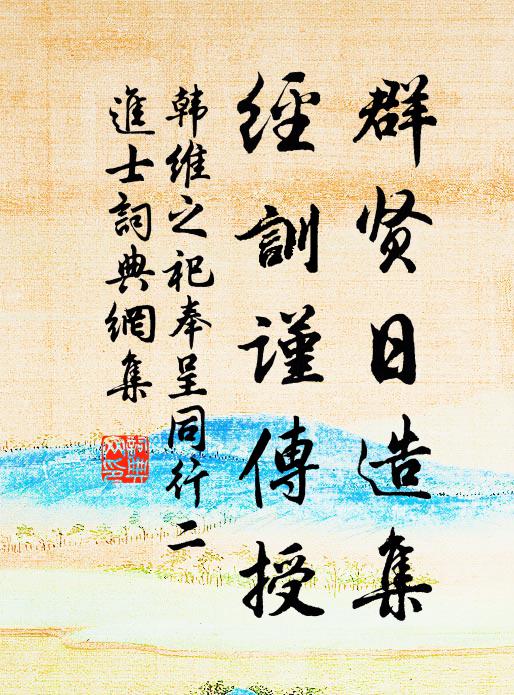 群贤日造集
經訓謹傳授
韩維之祀奉呈同行二
進士詞典網集